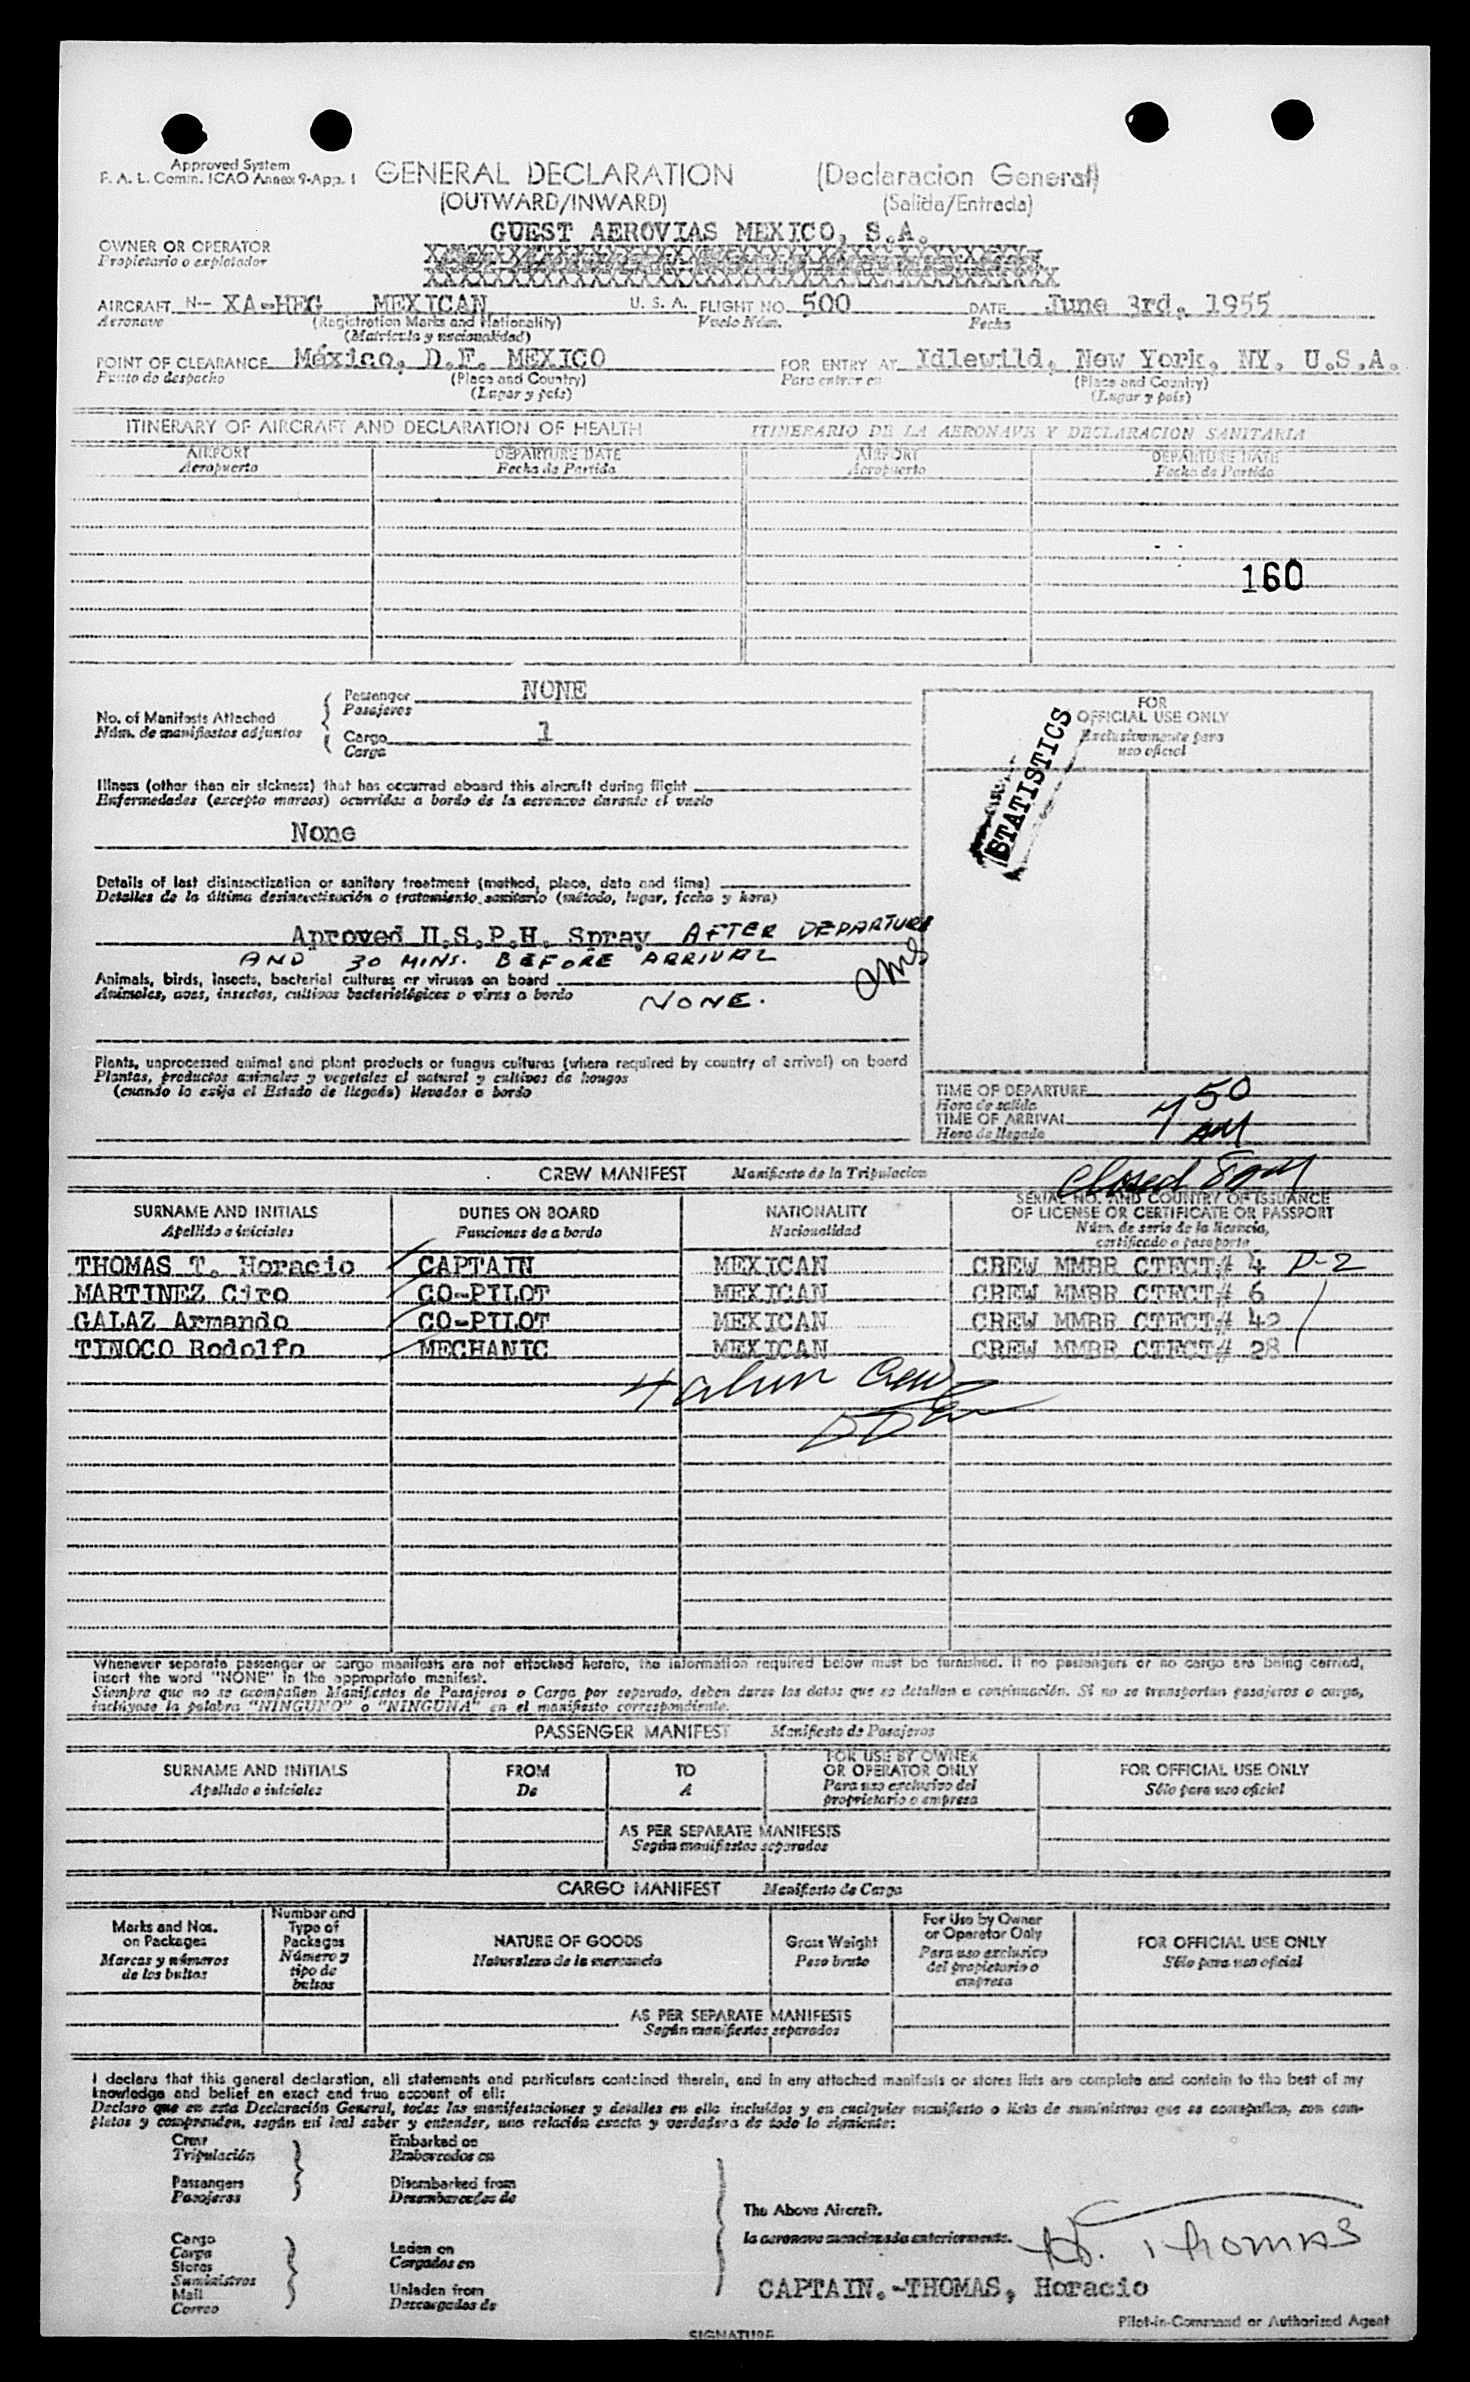 Approved System
F. A. L. Comm. ICAO Annex 9-App. 1
GENERAL DECLARATION (Declaracion General)
(OUTWARD/INWARD) (Salida/Entrada)
GUEST AEROVIAS MEXICO, S.A.
OWNER OR OPERATOR
Propietario o explotador
AIRCRAFT N-- XA-HEG MEXICAN U. S. A. FLIGHT NO. 500 DATE June 3rd, 1955
Aeronave (Registration Marks and Nationality) Vuelo Núm. Fecha
(Matricula y nacionalidad)
POINT OF CLEARANCE México, D.F. MEXICO FOR ENTRY AT Idlewild, New York, NY, U.S.A.
Punto de despacho (Place and Country) Para entrar en (Place and Country)
(Lugar y país) (Lugar y país)
ITINERARY OF AIRCRAFT AND DECLARATION OF HEALTH ITINERARIO DE LA AERONAVE Y DECLARACION SANITARIA
AIRPORT DEPARTURE DATE AIRPORT DEPARTURE DATE
Aeropuerto Fecha de Partida Aeropuerto Fecha de Partida
160
No. of Manifests Attached
Núm. de manifiestos adjuntos
Passenger NONE
Pasajeros
Cargo 1
Carga
FOR
OFFICIAL USE ONLY
Exclusivamente para
uso oficial
STATISTICS
Illness (other than air sickness) that has occurred aboard this aircraft during flight
Enfermedades (excepto mareos) ocurridas a bordo de la aeronave durante el vuelo
None
Details of last disinsectization or sanitary treatment (method, place, date and time)
Detalles de la última desinsectización o tratamiento sanitario (método, lugar, fecha y hora)
Aproved U.S.P.H. Spray AFTER DEPARTURE
AND 30 MINS. BEFORE ARRIVAL
Animals, birds, insects, bacterial cultures or viruses on board
Animales, aves, insectos, cultivos bacteriológicos o virus a bordo
NONE.
Plants, unprocessed animal and plant products or fungus cultures (where required by country of arrival) on board
Plantas, productos animales y vegetales al natural y cultivos de hongos
(cuando lo exija el Estado de llegada) llevados a bordo
TIME OF DEPARTURE
Hora de salida
TIME OF ARRIVAL 7 50 AM
Hora de llegada
CREW MANIFEST Manifiesto de la Tripulacion
Closed
SURNAME AND INITIALS DUTIES ON BOARD NATIONALITY SERIAL NO. AND COUNTRY OF ISSUANCE
OF LICENSE OR CERTIFICATE OR PASSPORT
Apellido e iniciales Funciones de a bordo Nacionalidad Núm. de serie de la licencia,
certificado o pasaporte
THOMAS T. Horacio CAPTAIN MEXICAN CREW MMBR CTFCT# 4 D-2
MARTINEZ Ciro CO-PILOT MEXICAN CREW MMBR CTFCT# 6
GALAZ Armando CO-PILOT MEXICAN CREW MMBR CTFCT# 42
TINOCO Rodolfo MECHANIC MEXICAN CREW MMBR CTFCT# 28
4 alien Crew
Whenever separate passenger or cargo manifests are not attached hereto, the information required below must be furnished. If no passengers or no cargo are being carried,
insert the word "NONE" in the appropriate manifest.
Siempre que no se acompañen Manifiestos de Pasajeros o Carga por separado, deben darse los datos que se detallan a continuación. Si no se transportan pasajeros o carga,
inclúyase la palabra "NINGUNO" o "NINGUNA" en el manifiesto correspondiente.
PASSENGER MANIFEST Manifiesto de Pasajeros
SURNAME AND INITIALS FROM TO FOR USE BY OWNER
OR OPERATOR ONLY FOR OFFICIAL USE ONLY
Apellido e iniciales De A Para uso exclusivo del
propietario o empresa Sólo para uso oficial
AS PER SEPARATE MANIFESTS
Según manifiestos separados
CARGO MANIFEST Manifiesto de Carga
Marks and Nos.
on Packages
Marcas y números
de los bultos
Number and
Type of
Packages
Número y
tipo de
bultos
NATURE OF GOODS
Naturaleza de la mercancía
Gross Weight
Peso bruto
For Use by Owner
or Operator Only
Para uso exclusivo
del propietario o
empresa
FOR OFFICIAL USE ONLY
Sólo para uso oficial
AS PER SEPARATE MANIFESTS
Según manifiestos separados
I declare that this general declaration, all statements and particulars contained therein, and in any attached manifests or stores lists are complete and contain to the best of my
knowledge and belief an exact and true account of all:
Declaro que en esta Declaración General, todas las manifestaciones y detalles en ella incluídos y en cualquier manifiesto o lista de suministros que se acompañen, son com-
pletos y comprenden, según mi leal saber y entender, una relación exacta y verdadera de todo lo siguiente:
Crew Embarked on
Tripulación Embarcados en
Passengers Disembarked from
Pasajeros Desembarcados de
The Above Aircraft.
la aeronave mencionada anteriormente.
H. THOMAS
Cargo
Carga
Stores
Suministros
Mail
Correo
Laden on
Cargados en
Unladen from
Descargados de
CAPTAIN.-THOMAS, Horacio
Pilot-in-Command or Authorized Agent
SIGNATURE